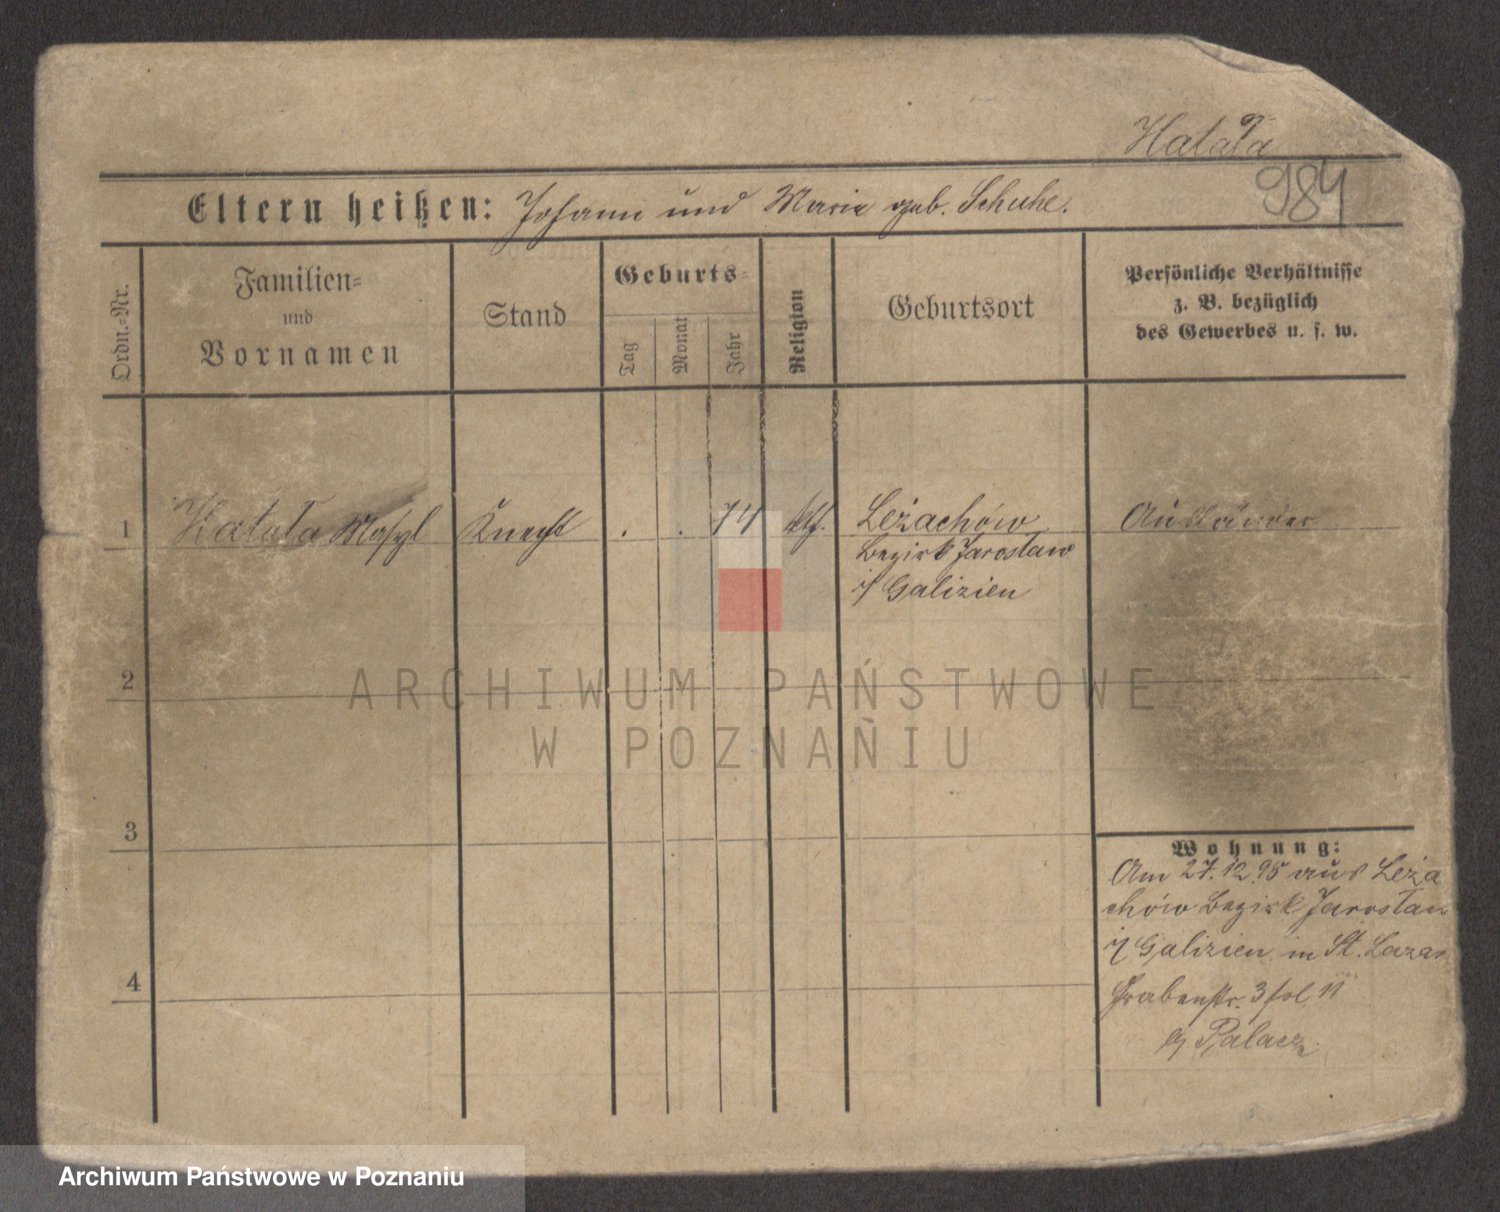 Hatała
984
Eltern heißen: Johann und Marie geb. Schuhe.
Ordn.=Nr.
Familien=
und
Vornamen
Stand
Geburts=
Tag
Monat
Jahr
Religion
Geburtsort
Persönliche Verhältnisse
z. B. bezüglich
des Gewerbes u. s. w.
1
Hatała
Knecht
.
.
74
kth.
Leżachów
Bezirk Jarosław
i/ Galizien
Ausländer
2
ARCHIWUM PAŃSTWOWE
W POZNANIU
3
Wohnung:
Am 27.12.95 aus Leża
chów Bezirk Jarosław
i/ Galizien in St. Lazar
Grabenstr. 3 fol. 11
b/ Palacz
4
Archiwum Państwowe w Poznaniu